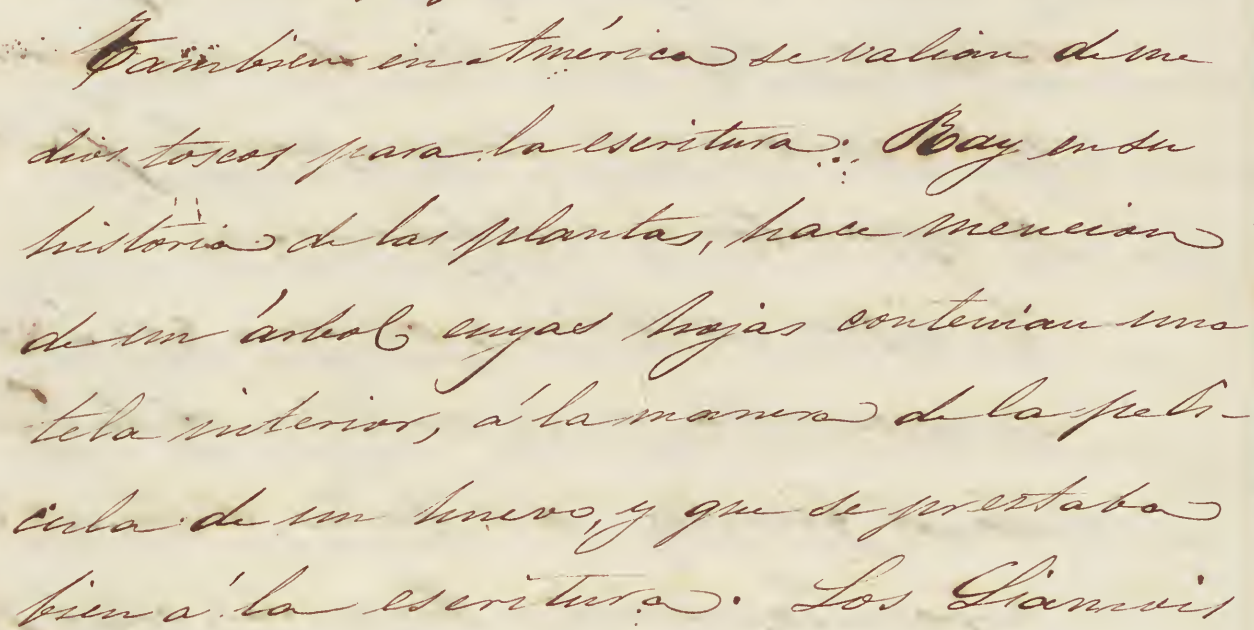 Tambien en América se valian de me
dios toscos para la escritura: Ray en su
historia de las plantas, hace mencion
de un árbol cuyas hojas contenian una
tela interior, á la manera de la peli-
cula de un huevo, y que se prestaba
bien á la escritura. Los Siamois